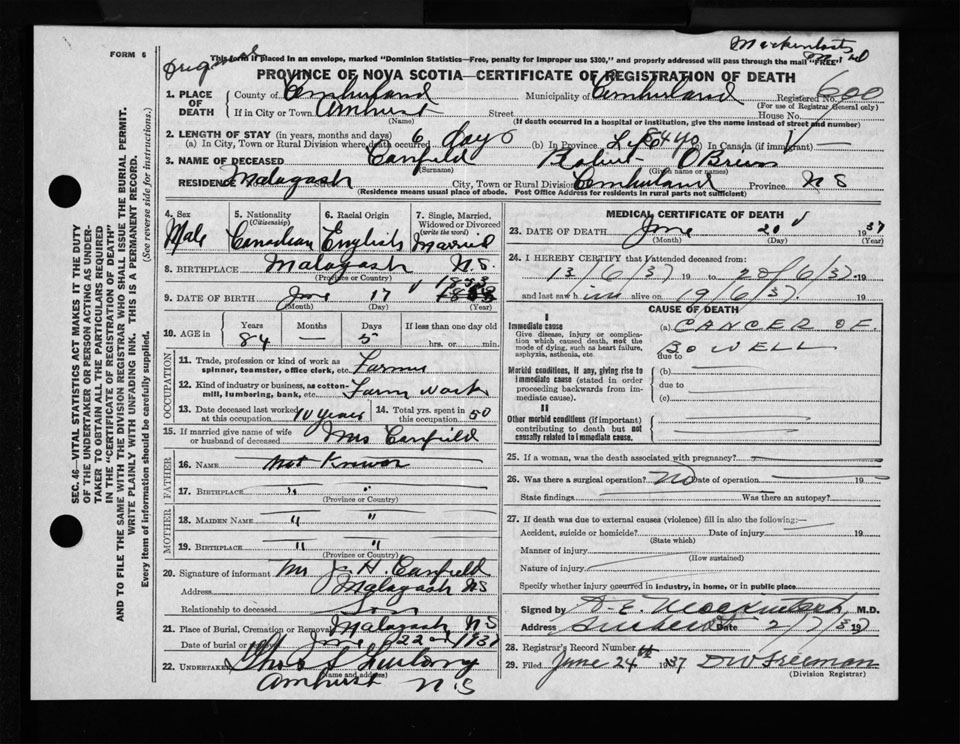 FORM 6
Original
This form if placed in an envelope, marked "Dominion Statistics—Free, penalty for improper use $300," and properly addressed will pass through the mail "FREE"
PROVINCE OF NOVA SCOTIA—CERTIFICATE OF REGISTRATION OF DEATH
SEC. 46—VITAL STATISTICS ACT MAKES IT THE DUTY
OF THE UNDERTAKER OR PERSON ACTING AS UNDER-
TAKER TO OBTAIN ALL THE PARTICULARS REQUIRED
IN THE "CERTIFICATE OF REGISTRATION OF DEATH"
AND TO FILE THE SAME WITH THE DIVISION REGISTRAR WHO SHALL ISSUE THE BURIAL PERMIT.
WRITE PLAINLY WITH UNFADING INK. THIS IS A PERMANENT RECORD.
Every item of information should be carefully supplied. (See reverse side for instructions.)
1. PLACE OF DEATH
County of Cumberland Municipality of Cumberland Registered No. 600
(For use of Registrar General only)
If in City or Town Amherst Street House No.
(Name) (If death occurred in a hospital or institution, give the name instead of street and number)
2. LENGTH OF STAY (in years, months and days)
(a) In City, Town or Rural Division where death occurred 6 days (b) In Province (c) In Canada (if immigrant)
3. NAME OF DECEASED Canfield Robert O'Brien
(Surname) (Given name or names)
RESIDENCE Malagash City, Town or Rural Division Cumberland Province N S
(Residence means usual place of abode. Post Office Address for residents in rural parts not sufficient)
4. Sex Male
5. Nationality (Citizenship) Canadian
6. Racial Origin English
7. Single, Married, Widowed or Divorced (write the word) Married
8. BIRTHPLACE Malagash N.S.
(Province or Country)
9. DATE OF BIRTH June 17 1853
(Month) (Day) (Year)
10. AGE in Years Months Days If less than one day old
84 — 5 hrs. or min.
OCCUPATION
11. Trade, profession or kind of work as spinner, teamster, office clerk, etc. Farmer
12. Kind of industry or business, as cotton-mill, lumbering, bank, etc. Farm work
13. Date deceased last worked at this occupation 10 years
14. Total yrs. spent in this occupation 50
15. If married give name of wife or husband of deceased Mrs Canfield
FATHER
16. NAME Not Known
17. BIRTHPLACE " "
(Province or Country)
MOTHER
18. MAIDEN NAME " "
19. BIRTHPLACE " "
(Province or Country)
20. Signature of informant Mr J. H. Canfield
Address Malagash NS
Relationship to deceased Son
21. Place of Burial, Cremation or Removal Malagash N S
Date of burial or June 22nd 1937
22. UNDERTAKER
(Name and address)
Amherst N.S
MEDICAL CERTIFICATE OF DEATH
23. DATE OF DEATH June 20 1937
(Month) (Day) (Year)
24. I HEREBY CERTIFY that I attended deceased from:
13/6/37 19 to 20/6/37 19
and last saw him alive on 19/6/37. 19
CAUSE OF DEATH
I
Immediate cause
Give disease, injury or complication which caused death, not the mode of dying, such as heart failure, asphyxia, asthenia, etc.
(a) CANCER OF
BOWELL
due to
Morbid conditions, if any, giving rise to immediate cause (stated in order proceeding backwards from immediate cause).
(b)
due to
(c)
II
Other morbid conditions (if important) contributing to death but not causally related to immediate cause.
25. If a woman, was the death associated with pregnancy?
26. Was there a surgical operation? No Date of operation 19
State findings Was there an autopsy?
27. If death was due to external causes (violence) fill in also the following:—
Accident, suicide or homicide? Date of injury 19
(State which)
Manner of injury
(How sustained)
Nature of injury
Specify whether injury occurred in industry, in home, or in public place
Signed by M.D.
Address Amherst Date 2/7/37 19
28. Registrar's Record Number
29. Filed June 24 1937 D W Freeman
(Division Registrar)